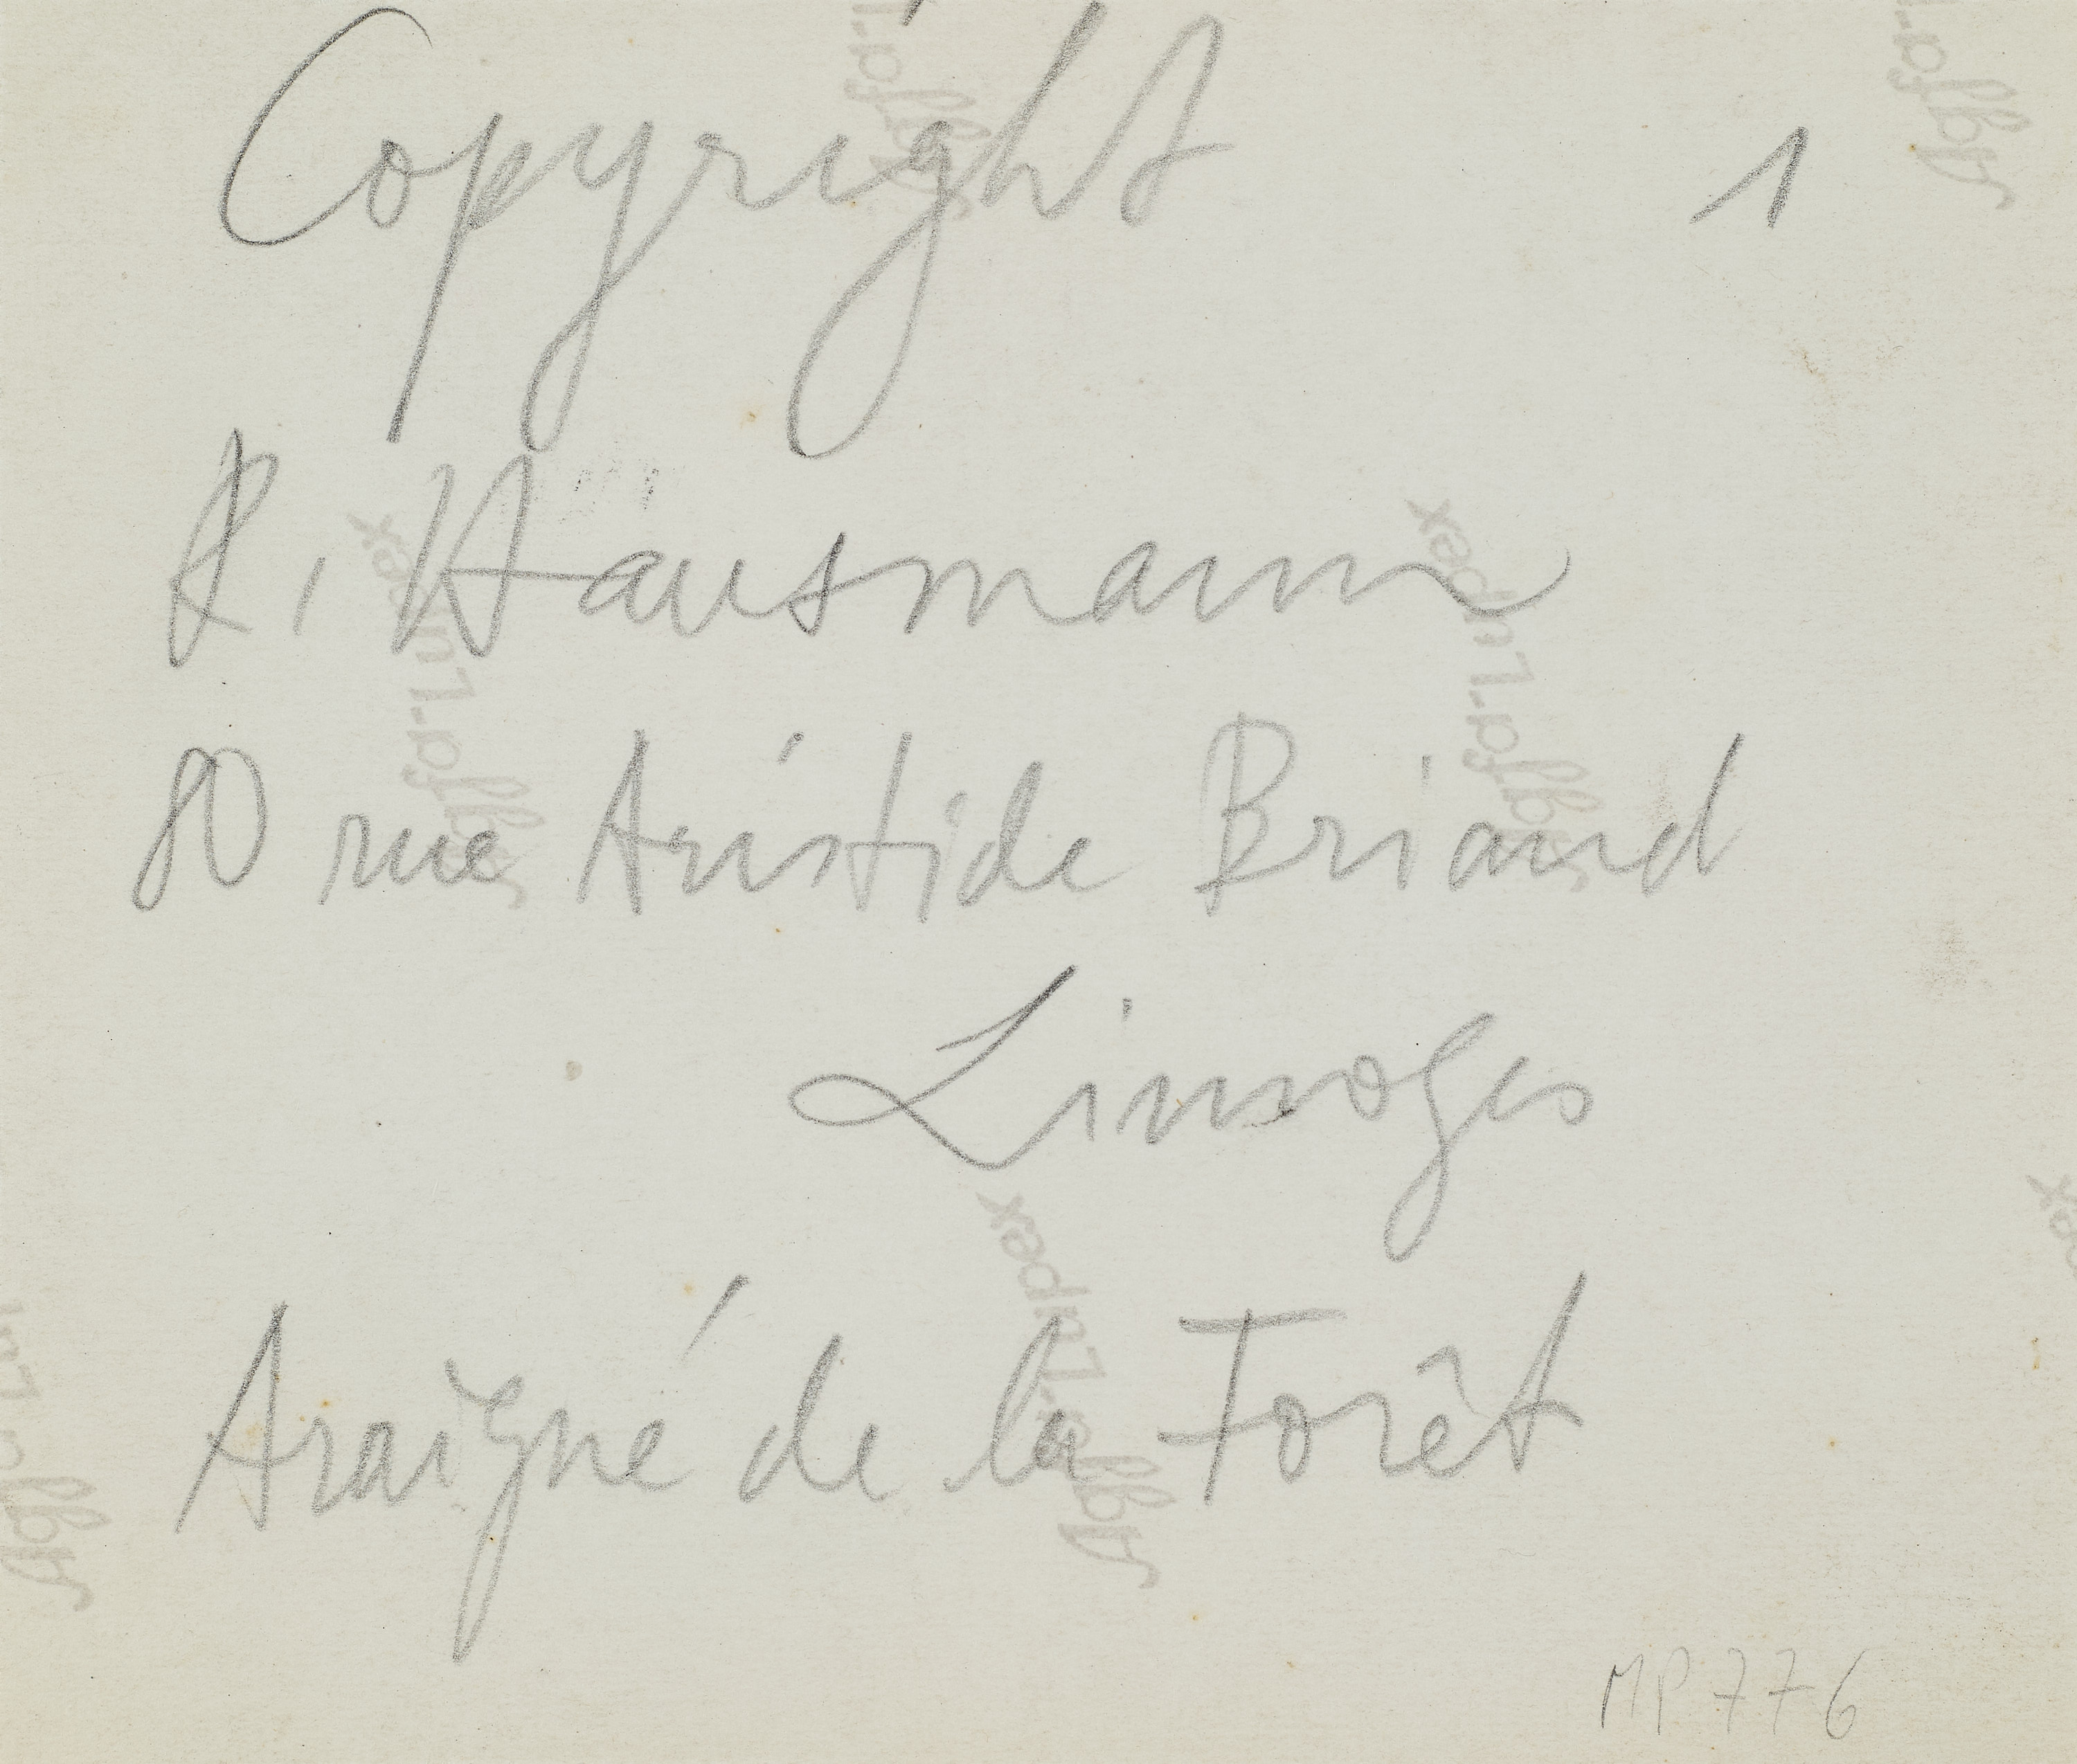 Copyright 1
R. Hausmann
80 rue Aristide Briand
Limoges
Araigné de la Forêt
MP 776
Agfa-Lupex
Agfa-Lupex
Agfa-Lupex